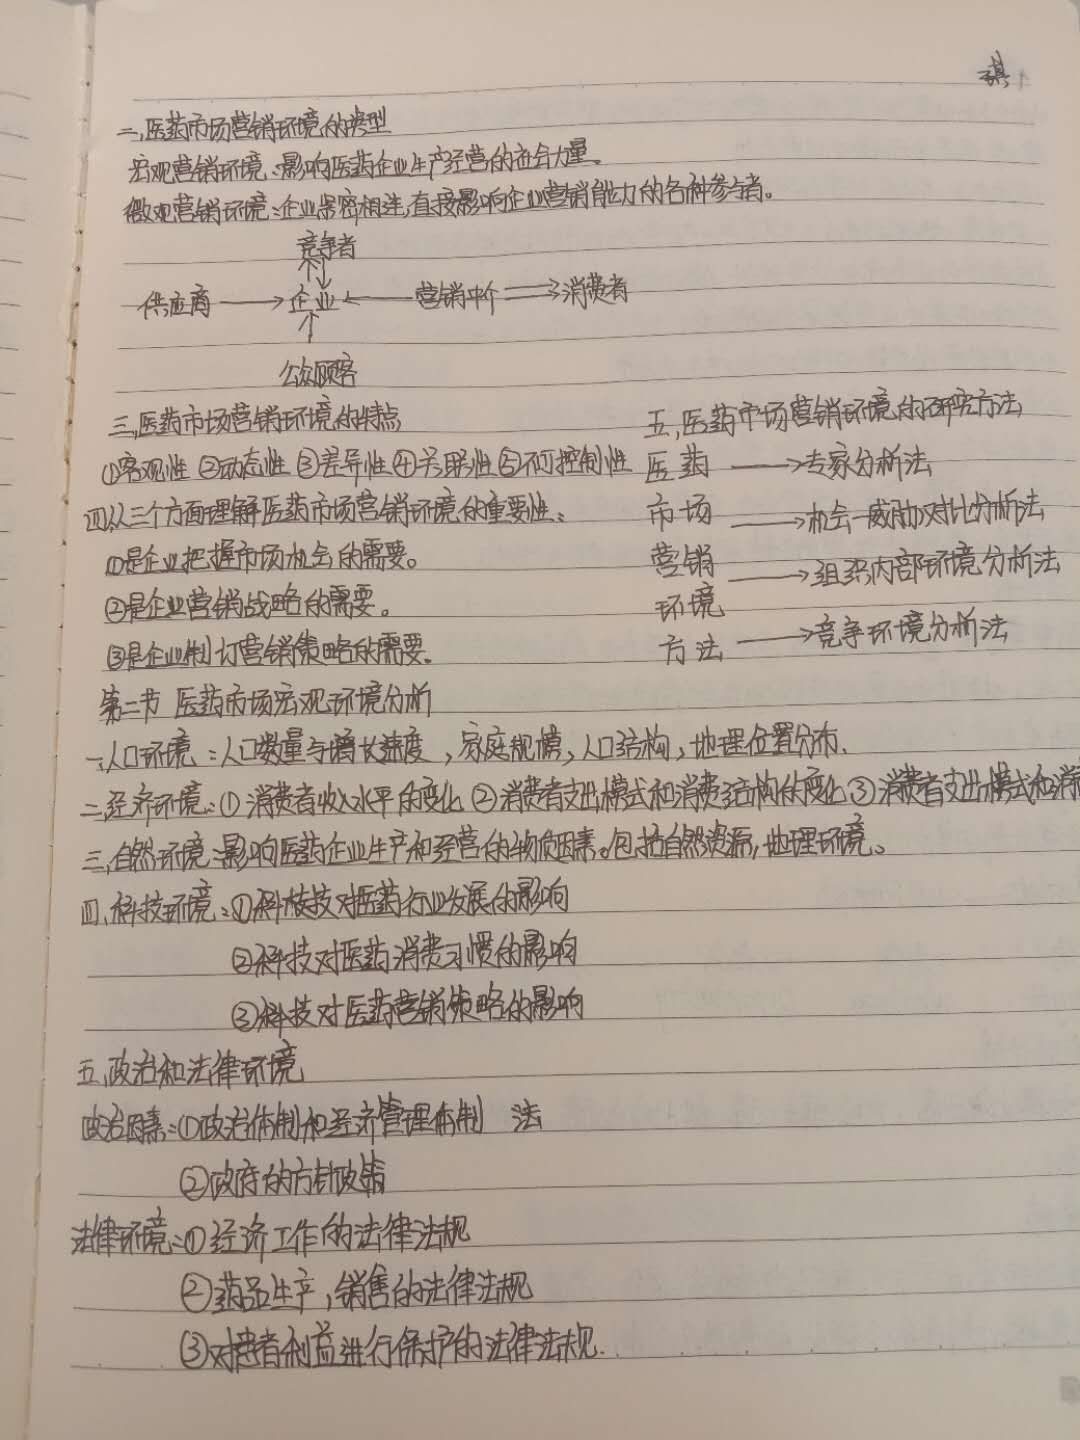 二、医药市场营销环境的类型
宏观营销环境:影响医药企业生产经营的社会力量。
微观营销环境:企业紧密相连,直接影响企业营销能力的各种参与者。
竞争者
供应商 → 企业 ← 营销中介 → 消费者
公众顾客
三、医药市场营销环境的特点
①客观性 ②动态性 ③差异性 ④关联性 ⑤不可控制性
四、从三个方面理解医药市场营销环境的重要性:
①是企业把握市场机会的需要。
②是企业营销战略的需要。
③是企业制订营销策略的需要。
五、医药市场营销环境的研究方法
医药 → 专家分析法
市场 → 机会—威胁对比分析法
营销 → 组织内部环境分析法
环境
方法 → 竞争环境分析法
第二节 医药市场宏观环境分析
一、人口环境:人口数量与增长速度,家庭规模,人口结构,地理位置分布.
二、经济环境:①消费者收入水平的变化 ②消费者支出模式和消费结构的变化 ③消费者支出模式和消
三、自然环境:影响医药企业生产和经营的物质因素。包括自然资源,地理环境。
四、科技环境:①科技对医药行业发展的影响
②科技对医药消费习惯的影响
③科技对医药营销策略的影响
五、政治和法律环境
政治因素:①政治体制和经济管理体制 法
②政府的方针政策
法律环境:①经济工作的法律法规
②药品生产,销售的法律法规
③对者利益进行保护的法律法规.